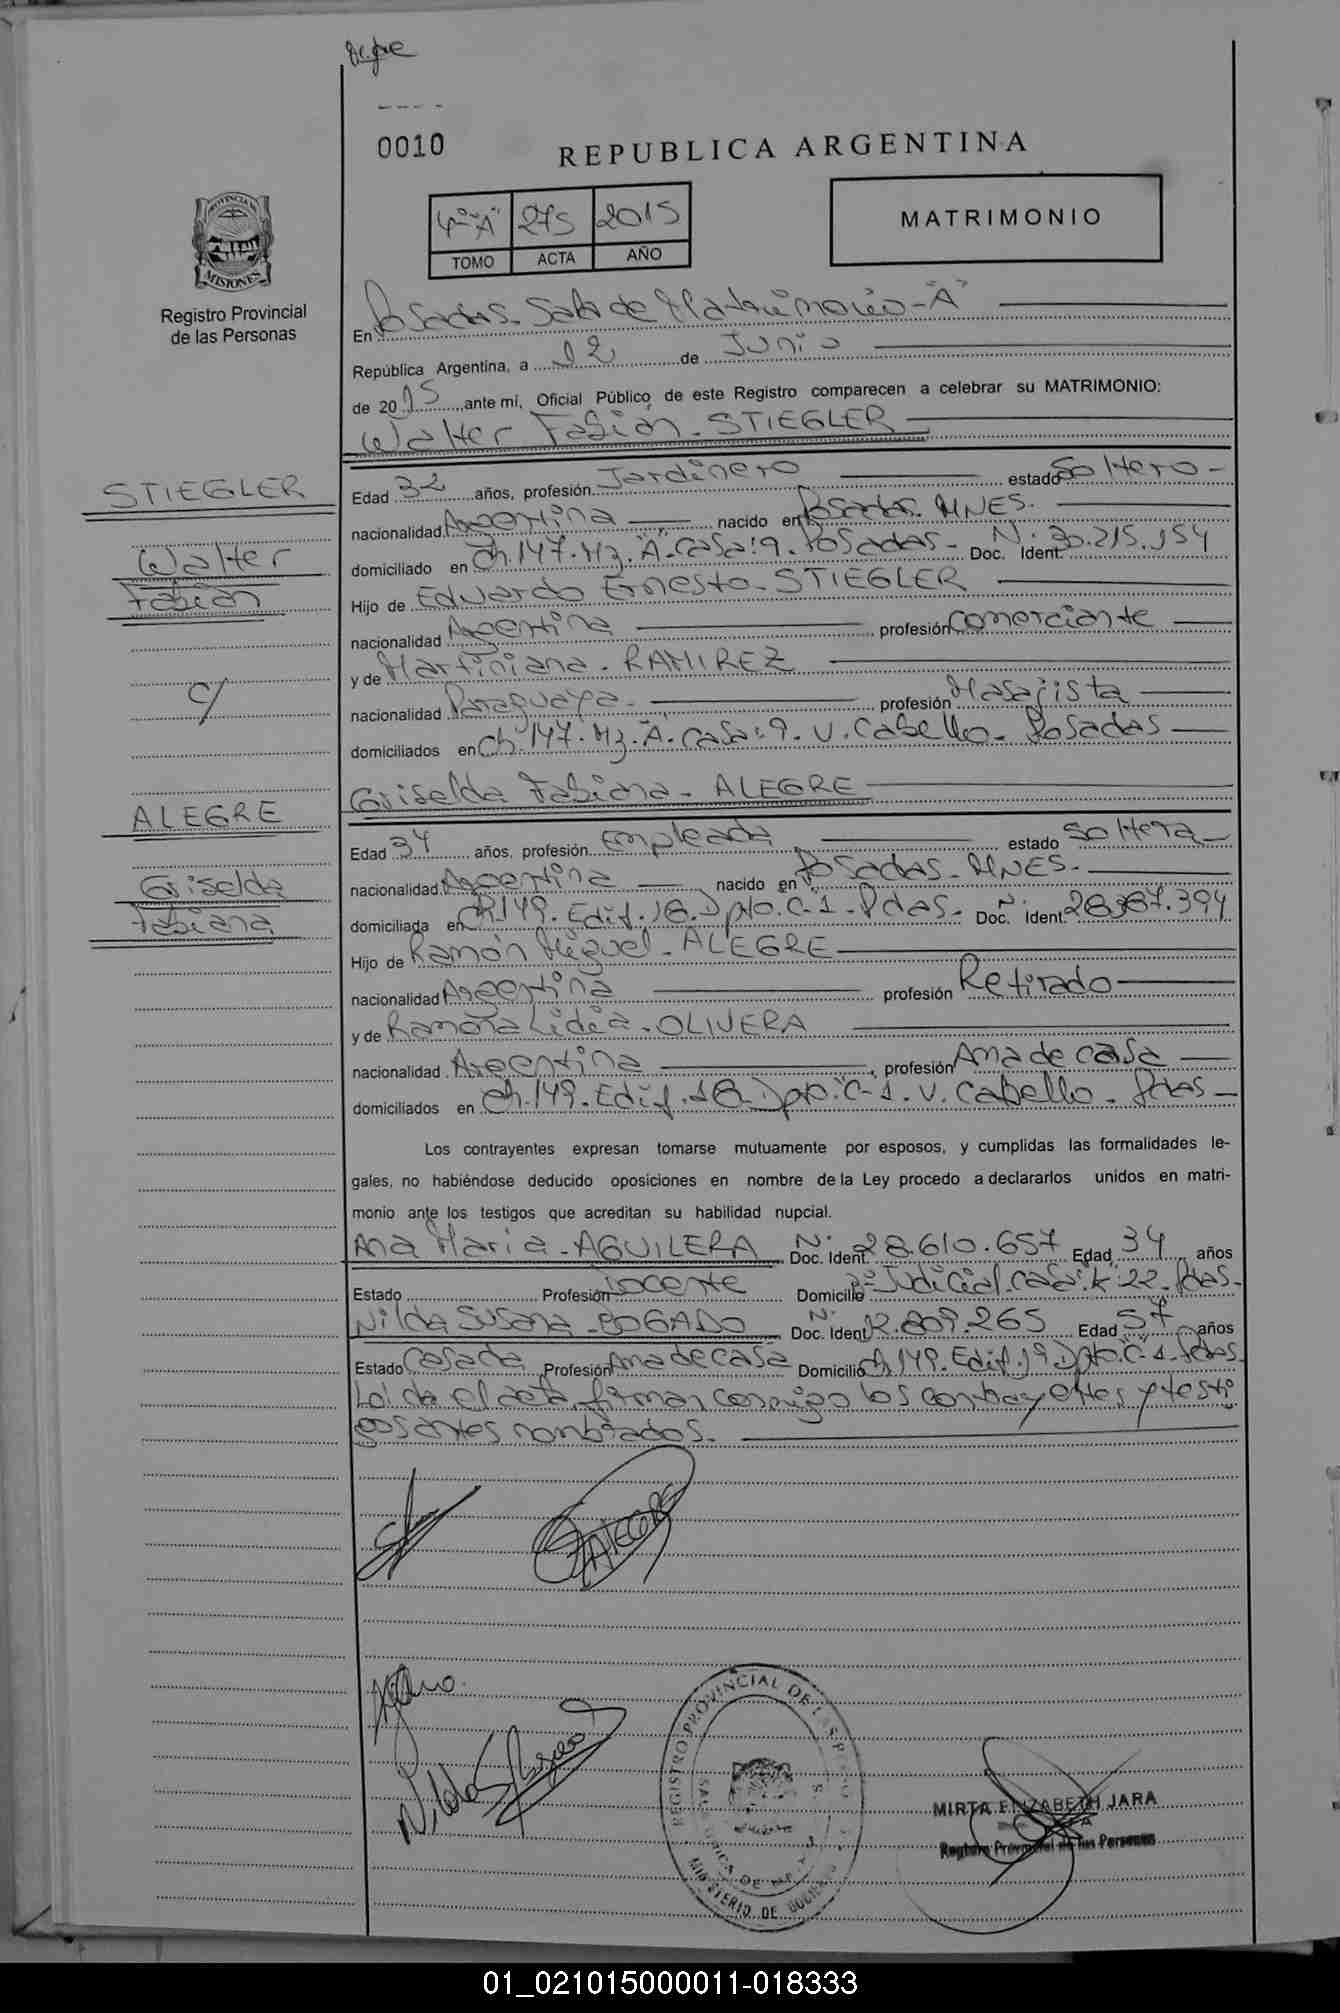 0010
REPUBLICA ARGENTINA
4º "A" 275 2015
TOMO ACTA AÑO
MATRIMONIO
PROVINCIA DE
MISIONES
Registro Provincial
de las Personas
En Posadas. Sala de Matrimonio-"A"
República Argentina, a 12 de Junio
de 2015, ante mí, Oficial Público de este Registro comparecen a celebrar su MATRIMONIO:
Walter Fabián. STIEGLER
STIEGLER
Walter
Fabián
c/
ALEGRE
Griselda
Fabiana
Edad 32 años, profesión Jardinero estado Soltero-
nacionalidad Argentina nacido en Posadas. MNES.
domiciliado en Ch.147.Mz."A".casa:9.Posadas- Doc. Ident. Nº 30.215.154
Hijo de Eduardo Ernesto. STIEGLER
nacionalidad Argentina profesión Comerciante
y de Martiniana. RAMIREZ
nacionalidad Paraguaya. profesión Masajista
domiciliados en Ch.147.Mz.A.casa:9.V.Cabello. Posadas
Griselda Fabiana. ALEGRE
Edad 34 años, profesión Empleada estado Soltera
nacionalidad Argentina nacido en Posadas. MNES.
domiciliada en Ch.149.Edif.18.Dpto.C-1.Pdas. Doc. Ident. Nº 28.367.394
Hijo de Ramón Miguel. ALEGRE
nacionalidad Argentina profesión Retirado
y de Ramona Lidia. OLIVERA
nacionalidad Argentina, profesión Ama de casa
domiciliados en Ch.149.Edif.18.Dpto.C-1.V.Cabello. Pdas-
Los contrayentes expresan tomarse mutuamente por esposos, y cumplidas las formalidades le-
gales, no habiéndose deducido oposiciones en nombre de la Ley procedo a declararlos unidos en matri-
monio ante los testigos que acreditan su habilidad nupcial.
Ana Maria. AGUILERA Doc. Ident. Nº 28.610.657 Edad 34 años
Estado Profesión Docente Domicilio Judicial.casa:K"22.Pdas.
Nilda Susana. BOGADO Doc. Ident. Nº 12.809.265 Edad 57 años
Estado Casada Profesión Ama de casa Domicilio Ch.149.Edif.19.Dpto.C-1.Pdas.
Leída el acta, firman conmigo los contrayentes y testi
gos antes nombrados.
ALEGRE
REGISTRO PROVINCIAL DE LAS
MINISTERIO DE GOBIERNO
MIRTA ELIZABETH JARA
Registro Provincial de las Personas
01_021015000011-018333